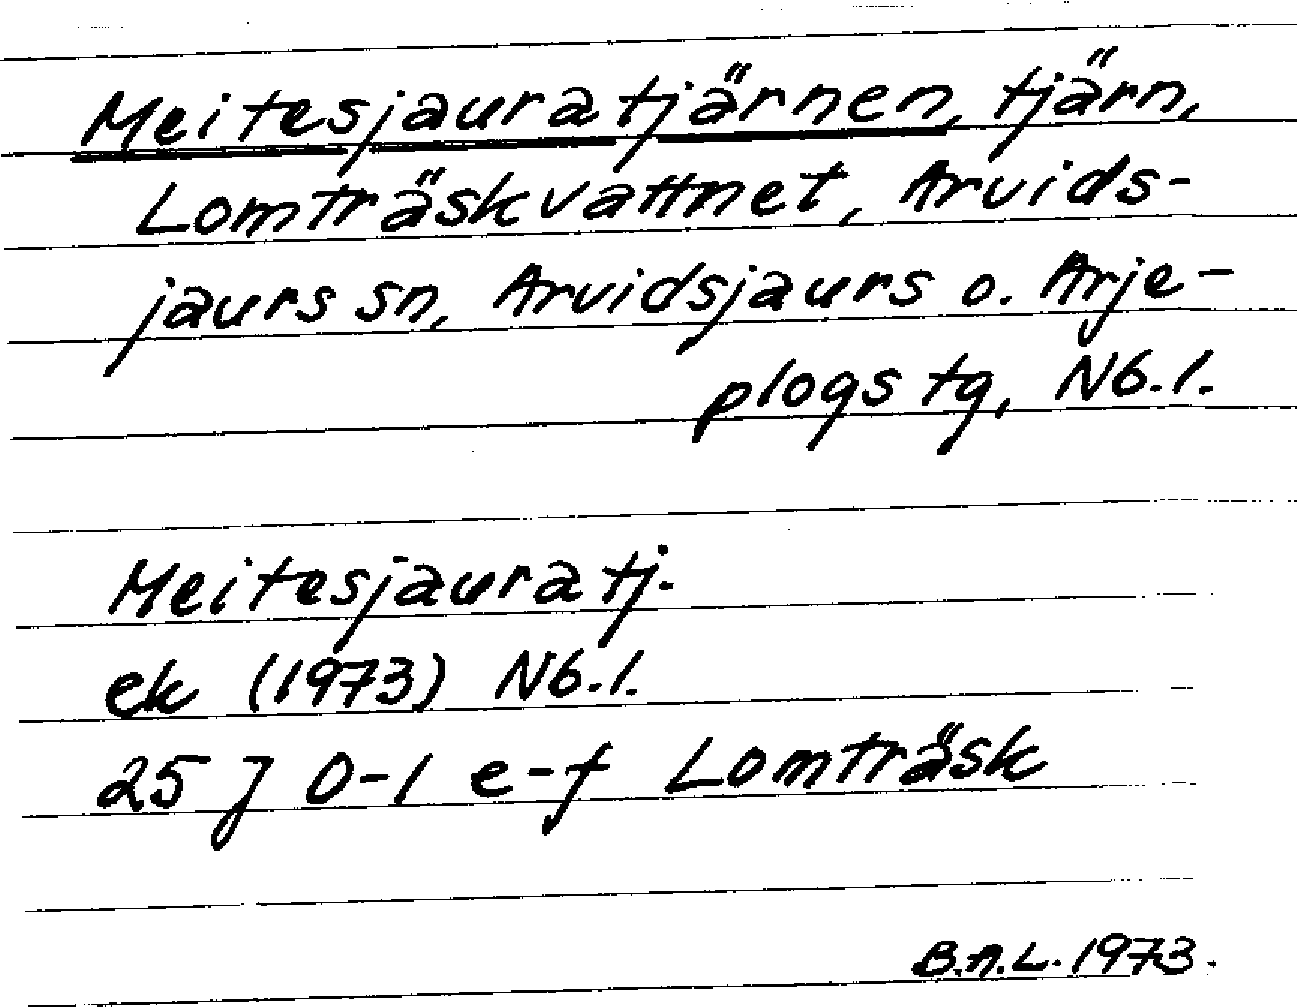 Meitesjauratjärnen, tjärn,
Lomträskvattnet, Arvids-
jaurs sn, Arvidsjaurs o. Arje-
plogs tg, Nb.l.
Meitesjauratj.
ek (1973) Nb.l.
25 J 0-1 e-f Lomträsk
B.A.L. 1973.